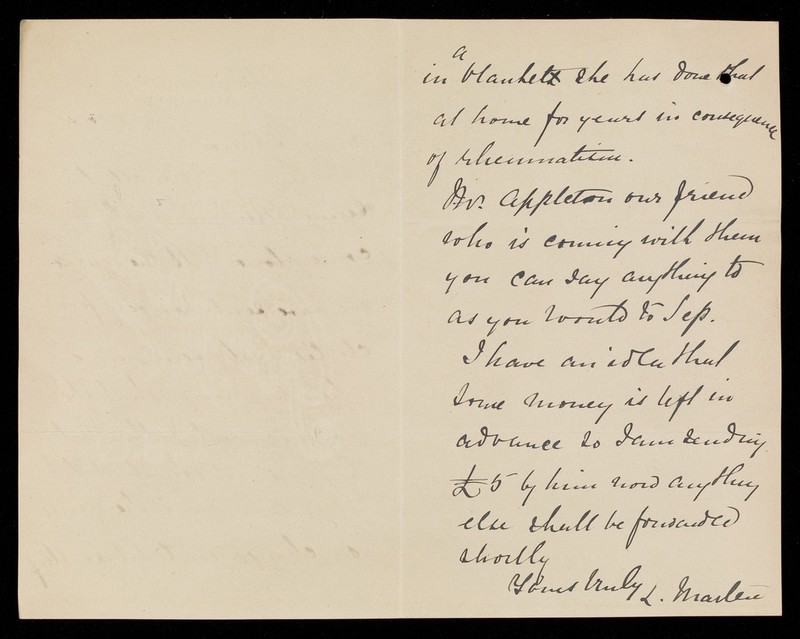 a
in blankets she has done that
at home for years in consequence
of rheumatism.
Mr. Appleton our friend
who is coming with them
you can say anything to
as you would to Sep.
I have an idea that
some money is left in
advance so I am sending
£5 by him now anything
else shall be forwarded
shortly
Yours truly L. Marten